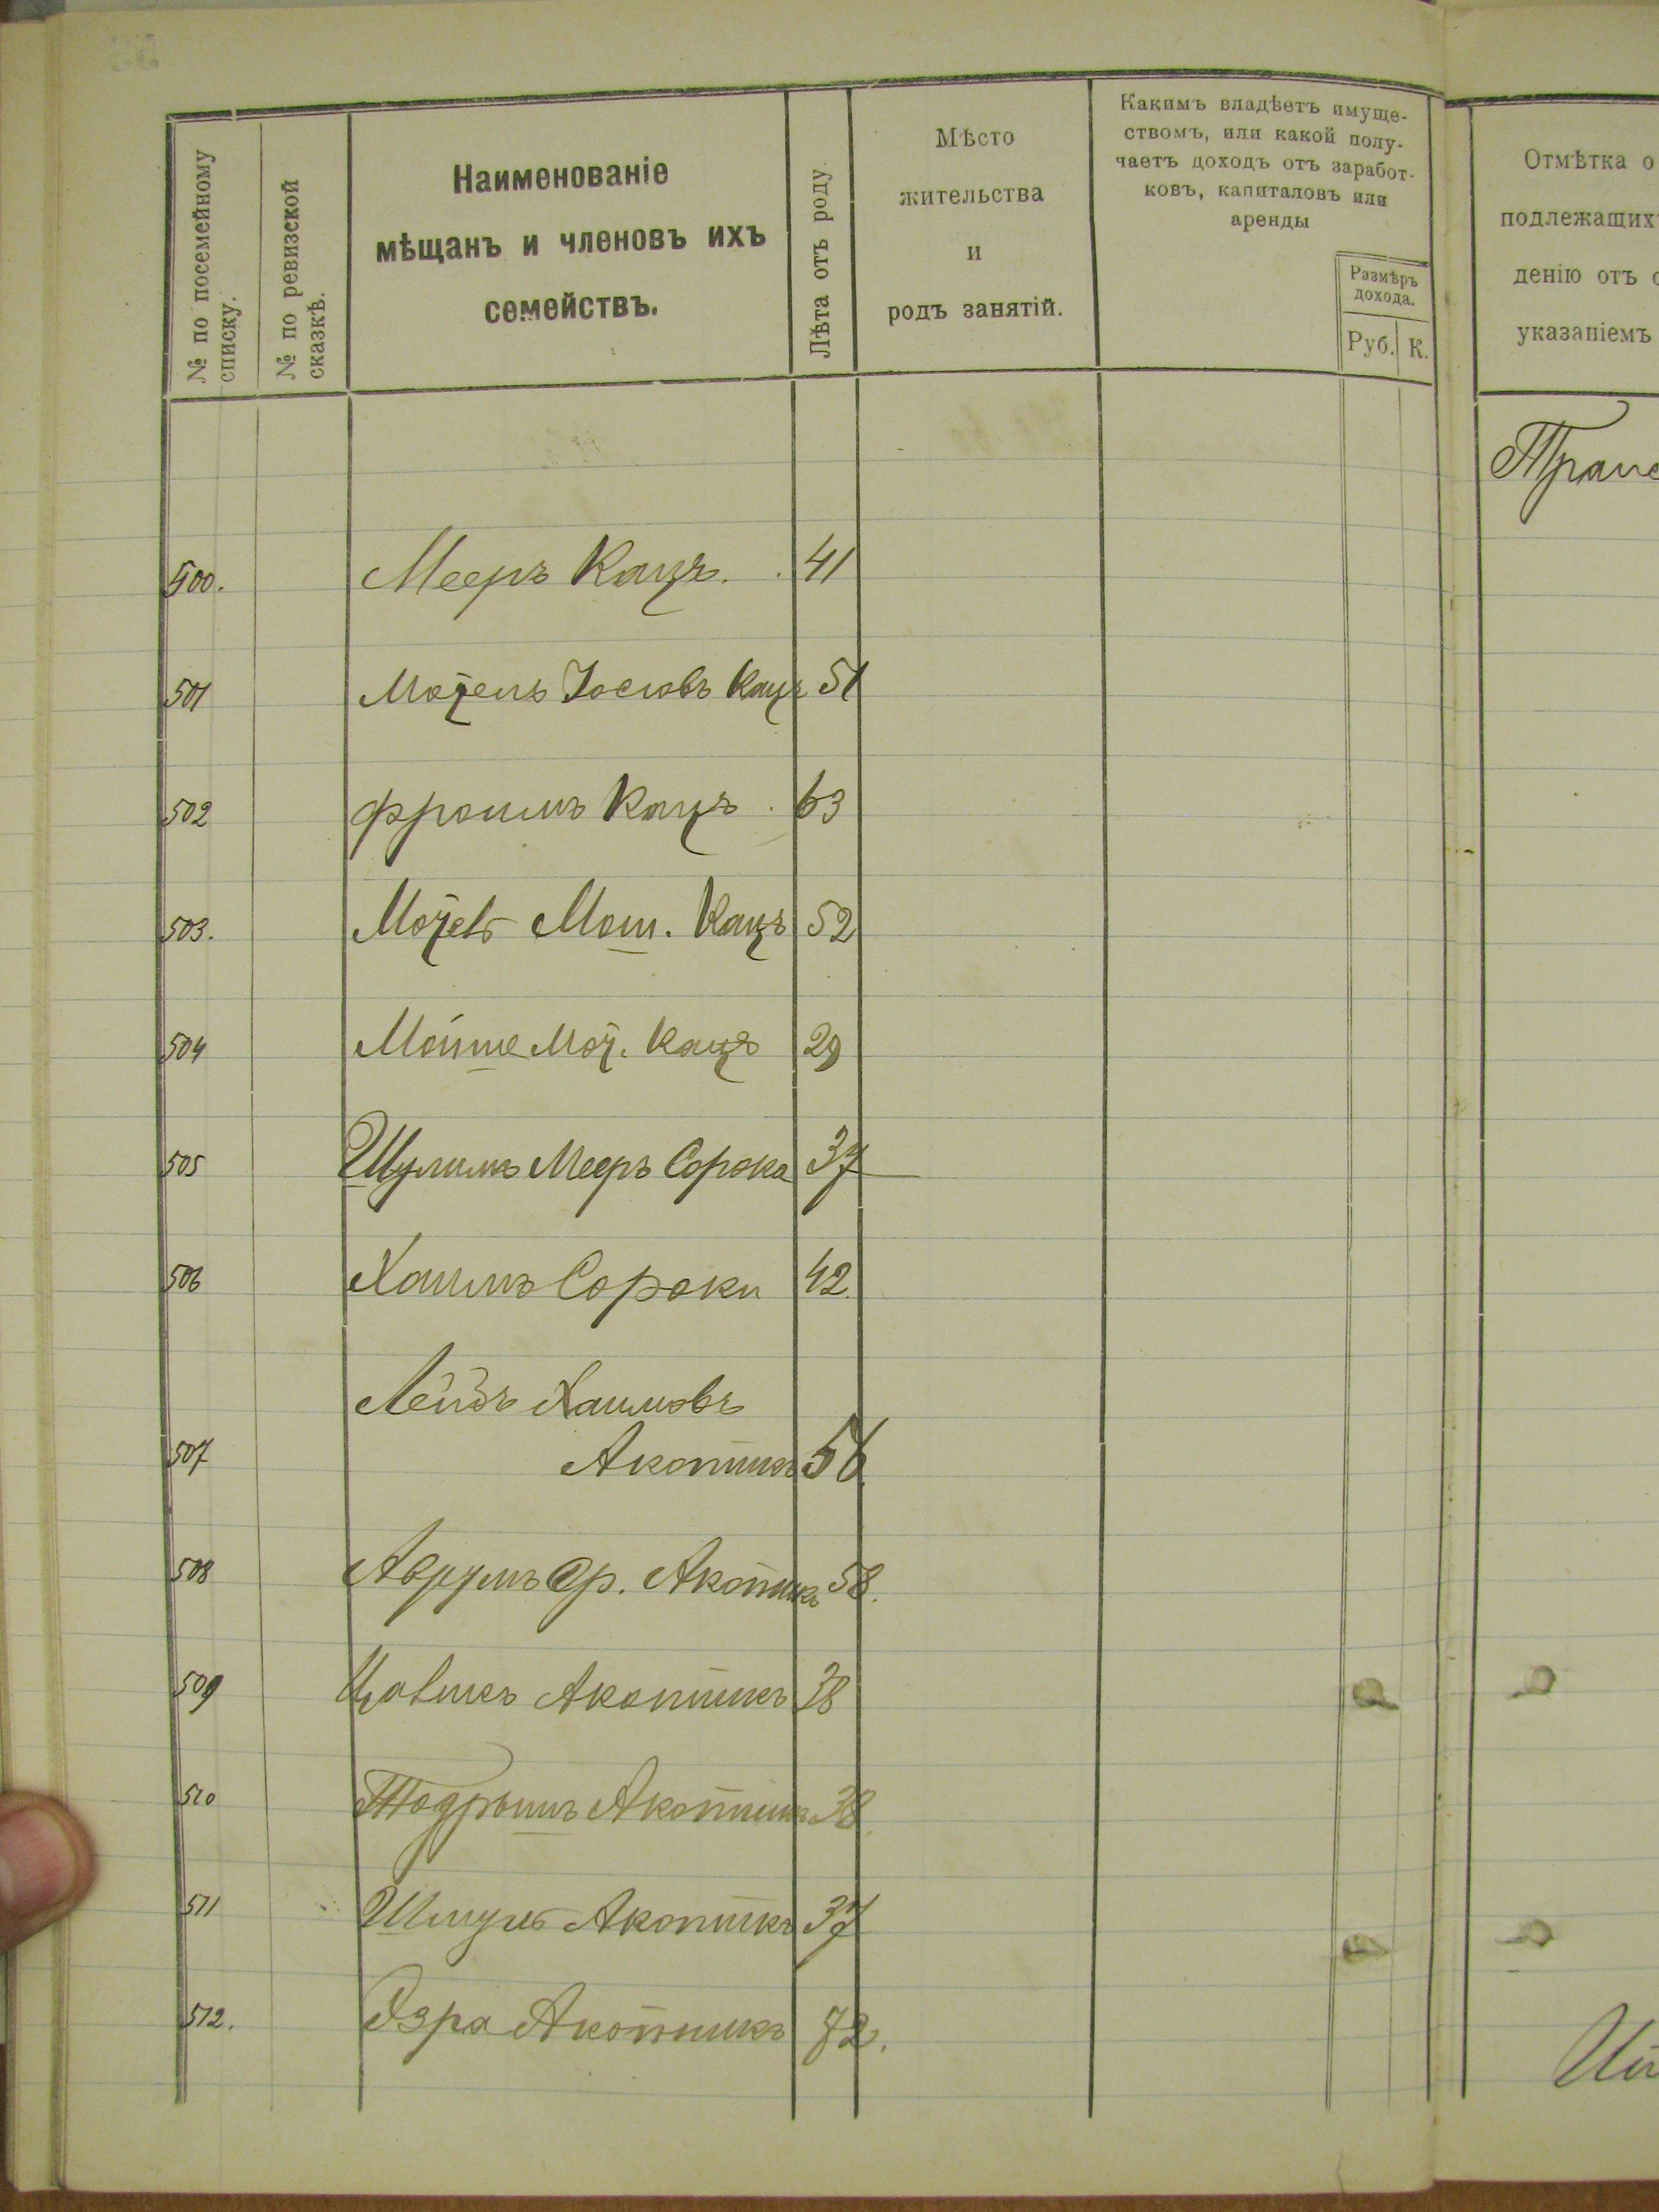 № по посемейному
списку.
№ по ревизской
сказкѣ.
Наименованіе
мѣщанъ и членовъ ихъ
семействъ.
Лѣта отъ роду
Мѣсто
жительства
и
родъ занятій.
Какимъ владѣетъ имуще-
ствомъ, или какой полу-
чаетъ доходъ отъ заработ-
ковъ, капиталовъ или
аренды
Размѣръ
дохода.
Руб. К.
Отмѣтка о
подлежащихъ
денію отъ
указаніемъ
500. Мееръ Кацъ. 41
501 Иосіовъ Кацъ 51
502 Фроимъ Кацъ 63
503. Мош. Кацъ 52
504 Мойше Кацъ 29
505 Шулимъ Мееръ Сорока 37
506 Хаимъ Сороки 42
Лейбъ Хаимовъ
507 Акопникъ 56
508 Аврумъ Ср. Акопникъ 58.
509 Акопникъ 38
510 Акопникъ 38
511 Шмуль Акопникъ 37
512. Эзра Акопникъ 72.